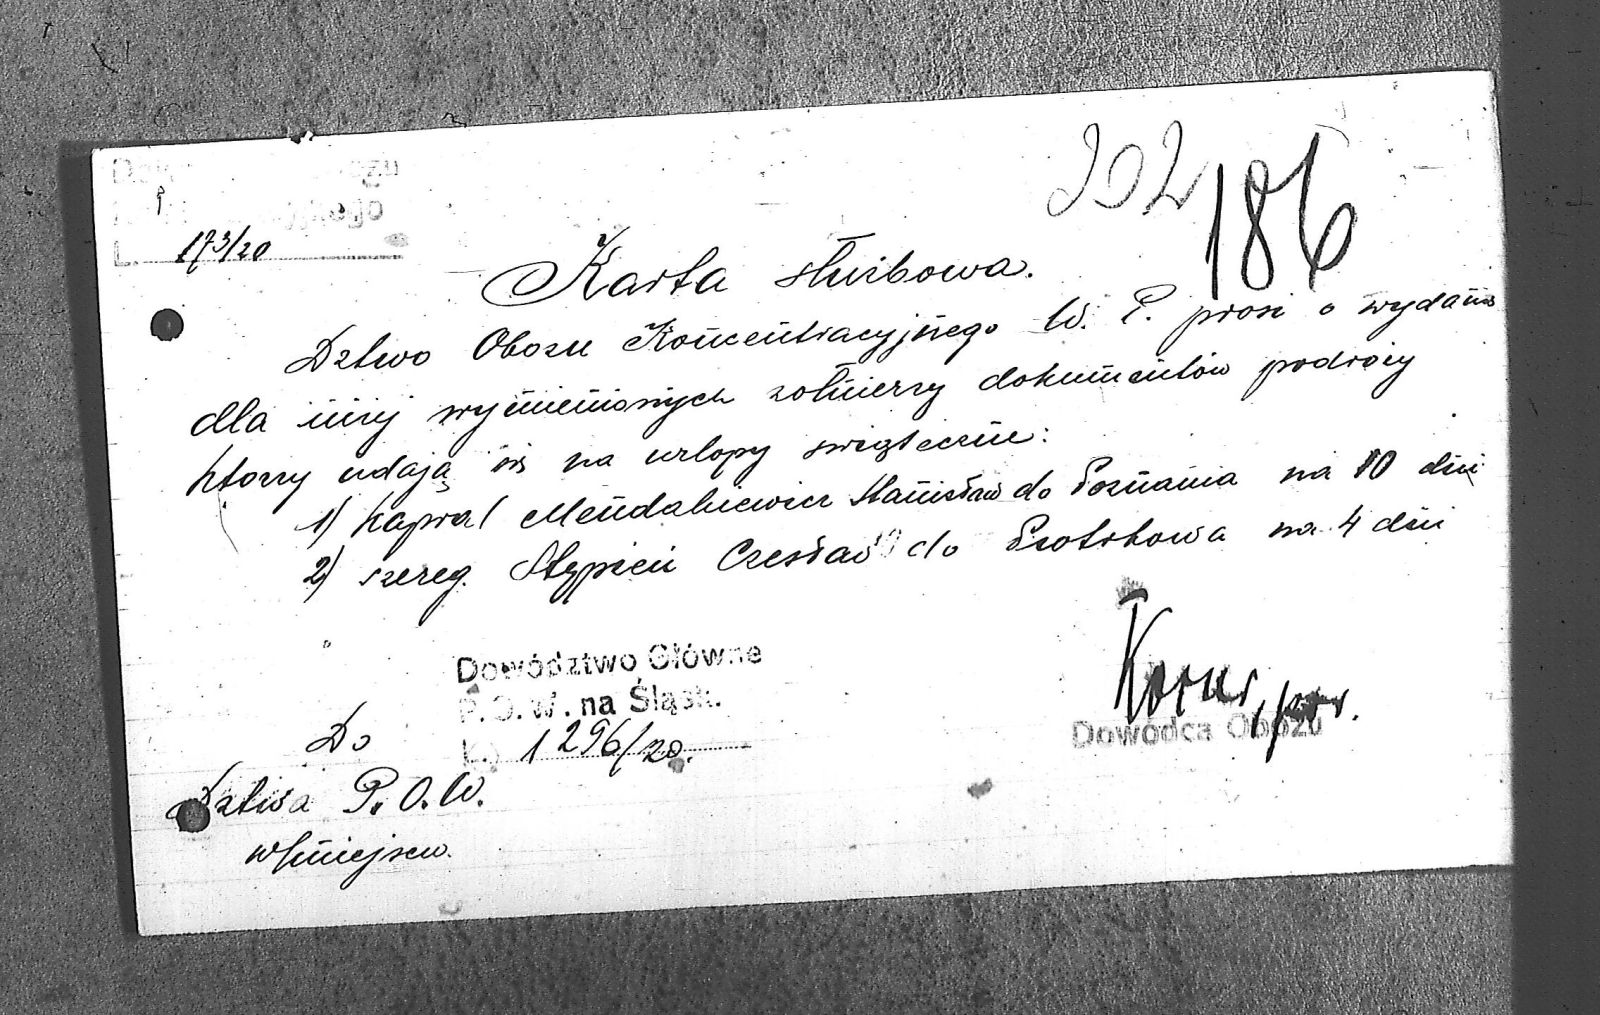 202
186
173/20
Karta służbowa.
Dztwo Obozu Koncentracyjnego W. P. prosi o wydanie
dla niżej wymienionych żołnierzy dokumentów podroży
ktorzy udają się na urlopy swiąteczne:
1) Kapral Mendalkiewicz Stanisław do Poznania na 10 dni
2) szereg. Stępień Czesław do Piotrkowa na 4 dni
Dowództwo Główne
P.O.W. na Śląsk.
L.) 1296/20.
Do
Dztwa P.O.W.
w miejscu.
Dowódca Obozu